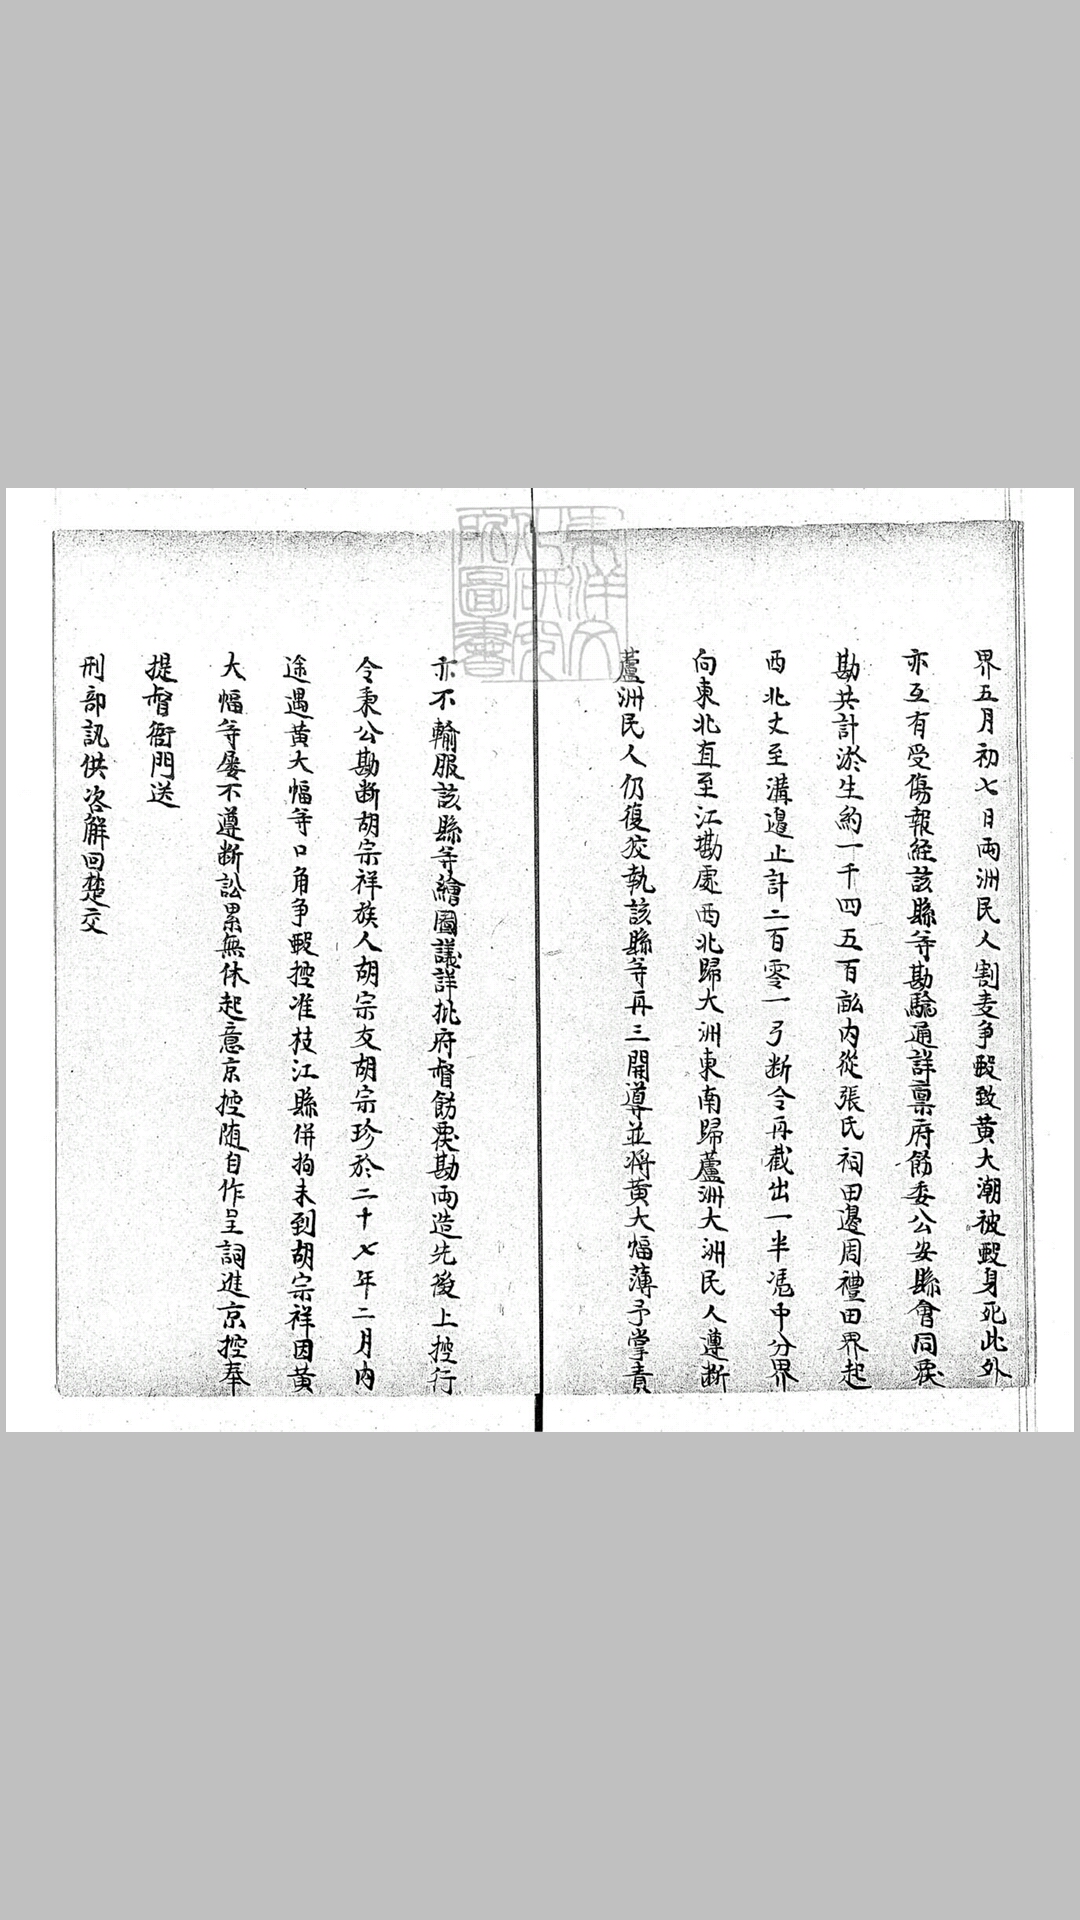 界五月初七日両洲民人割麦争毆致黄大潮被毆身死此外
亦互有受傷報経該縣等勘驗通詳稟府飭委公安縣會同覆
勘共計淤生約一千四五百畝内從張氏祠田邊周禮田界起
西北丈至溝邉止計二百零一弓断令再截出一半凴中分界
向東北直至江勘處西北歸大洲東南歸蘆洲大洲民人遵断
蘆洲民人仍復狡執該縣等再三開導並将黄大幅薄予掌責
亦不輸服該縣等繪圖議詳批府督飭覆勘両造先後上控行
令秉公勘断胡宗祥族人胡宗友胡宗珍於二十七年二月内
途遇黄大幅等口角争毆控准枝江縣併拘未到胡宗祥因黄
大幅等屡不遵断訟累無休起意京控随自作呈詞進京控奉
提督衙門送
刑部訊供咨解回楚交
東洋文
化研究
所圖書